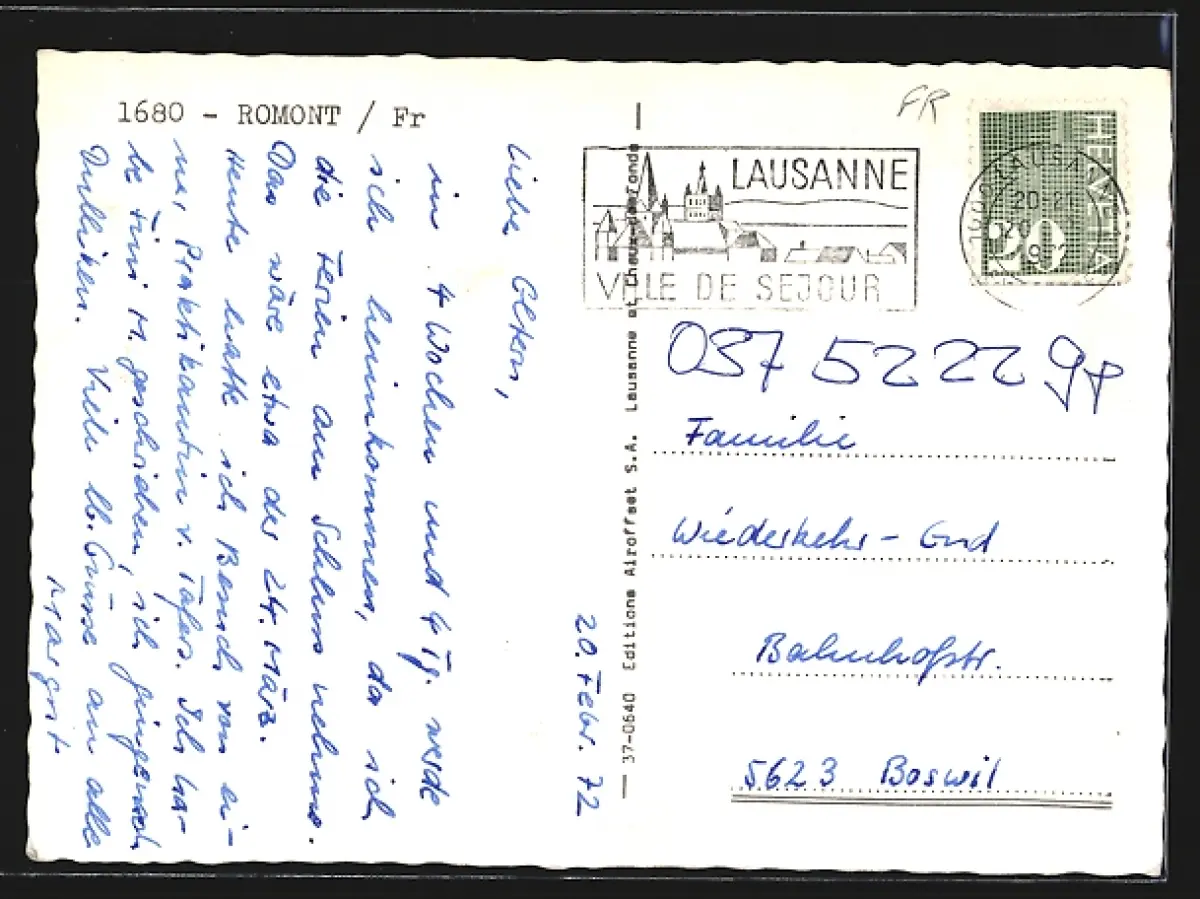 1680 - ROMONT / Fr
20. Febr. 72
Liebe Eltern,
in 4 Wochen und 4 Tg. werde
ich heimkommen, da ich
die Ferien am Schluss nehme.
Das wäre etwa der 24. März.
Heute hatte ich Besuch von ei-
ner Praktikantin v. Tafers. Ich ha-
be Trini M. geschrieben, ich
Dulliken. Viele lb. Grüsse an alle
Margrit.
37-0640 Editions Airoffset S.A. Lausanne et Chaux-de-Fonds
FR
LAUSANNE
VILLE DE SEJOUR
HELVETIA
20
1000 LAUSANNE
20-21
20
1972
037 52 22 98
Familie
Wiederkehr - Gnd
Bahnhofstr.
5623 Boswil